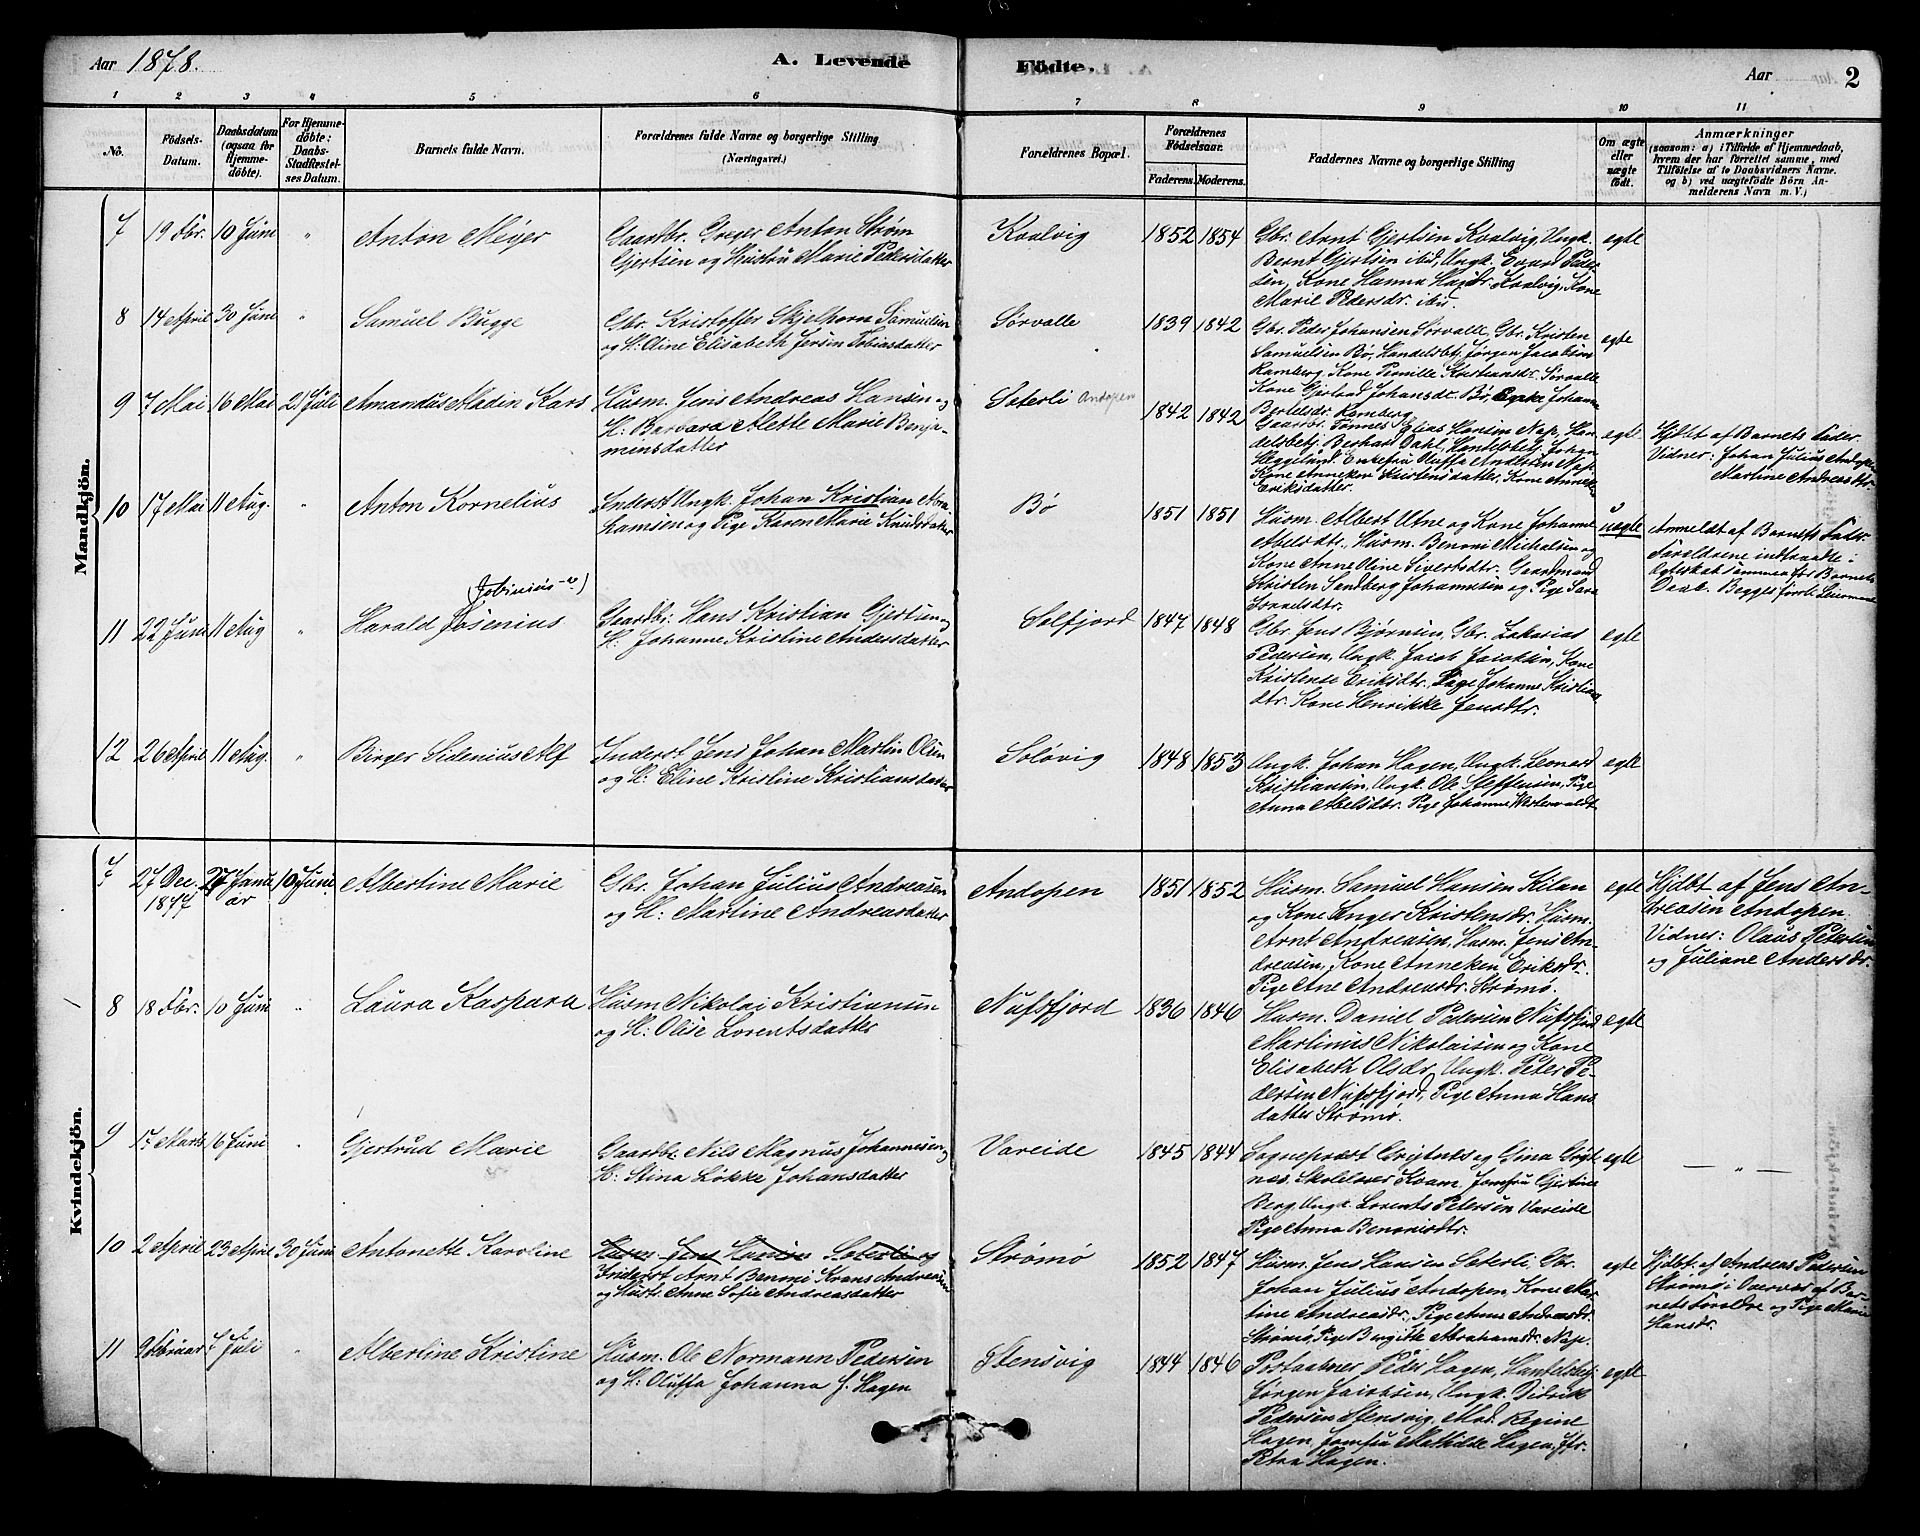 Aar 1878.
A. Levende Födte.
Aar
2
1 2 3 4 5 6 7 8 9 10 11
No.
Födsels-
Datum.
Daabsdatum
(ogsaa for
Hjemme-
döbte).
For Hjemme-
döbte:
Daabs-
Stadfæstel-
ses Datum.
Barnets fulde Navn.
Forældrenes fulde Navne og borgerlige Stilling
(Næringsvei.)
Forældrenes Bopæl.
Forældrenes
Födselsaar.
Faderens. Moderens.
Faddernes Navne og borgerlige Stilling
Om ægte
eller
uægte
födt.
Anmærkninger
(saasom: a) i Tilfælde af Hjemmedaab,
hvem der har forrettet samme, med
Tilföielse af to Daabsvidners Navne.
og b) ved uægtefödte Börn An-
melderens Navn m. V.)
Mandkjön.
7
19 Fbr.
10 Juni
"
Anton Meyer
Gaardbr. Greger Anton Strøm
Gjertsen og Hustru Marie Pedersdatter
Kvalvig
1852 1854
Gbr. Arnt Gjertsen Kvalvig, Ungk.
Bernt Gjertsen ibid, Ungk. Evard Peder-
sen, Kone Hanna Hagdr. Kvalvig, Kone
Marie Pedersdr. ibid.
egte
8
14 April
30 Juni
"
Samuel Bugge
Gbr. Kristoffer Skjelhorn Samuelsen
og H: Oline Elisabeth Jersin Tobiasdatter
Sørvalle
1839 1842
Gbr. Peder Johansen Sørvalle, Gbr. Kristen
Samuelsen Bø, Handelsbetj. Jørgen Jacobsen
Ramberg, Kone Pernille Kristiansdr. Sørvalle
Kone Gjertrud Johansdr. Bø, Enke Johanna
Bertelsdr. Ramberg
egte
9
7 Mai
16 Mai
21 Juli
Amandus Madin Kars
Husm. Jens Andreas Hansen og
H: Barbara Alette Marie Benja-
minsdatter
Seterli Andopen
1842 1842
Gaardbr. Tønnes Elias Hansen Nap, Han-
delsbetj. Berhard Dahl, Handelsbetj. Johan
Heggelund, Enkefru Oluffa Andersen Nap,
Kone Anneken Kristensdatter, Kone Anneken
Eriksdatter.
egte
Hjdbt af Barnets Fader.
Vidner: Johan Julius Andopen
Martine Andreasdtr.
10
17 Mai
11 Aug.
"
Anton Kornelius
Inderst Ungk. Johan Kristian Abra-
hamsen og Pige Karen Marie Knudsdatter
Bø
1851 1851
Husm. Albert Utne og Kone Johanna
Abelsdtr., Husm. Benoni Michalsen og
Kone Anne Oline Sivertsdtr. Gaardmand
Kristen Sandberg Johannesen og Pige Sara
Tornelsdtr.
uægte
Anmeldt af Barnets Fader.
Foreldrene indtraadte i
Egteskab sammen før Barnets
Daab. Begges første Leiermaal
11
22 Juni
11 Aug
"
(Jobinius-?)
Harald Josenius
Gaardbr: Hans Kristian Gjertsen og
H. Johanna Kristine Andersdatter
Solfjord
1847 1848
Gbr. Jens Bjørnsen, Gbr. Zakarias
Pedersen, Ungk. Jacob Jacobsen, Kone
Kristense Eriksdtr., Pige Johanna Kristians
dtr. Kone Henrikke Jensdtr.
egte
12
26 April
11 Aug.
"
Birger Sidenius Alf
Inderst Jens Johan Martin Olsen
og H: Eline Kristine Kristiansdatter
Soløvig
1848 1853
Ungk. Johan Hagen, Ungk. Leonard
Kristiansen, Ungk. Ole Steffensen, Pige
Anna Abelsdtr. Pige Johanna Westervaldt.
egte
Kvindekjön.
7
27 Dec.
1877
27 Janu
ar
10 Juni
Albertine Marie
Gbr. Johan Julius Andreasen
og H: Martine Andreasdatter
Andopen
1851 1852
Husm. Samuel Hansen Kilan
og Kone Inger Kristensdr. Husm.
Arnt Andreasen, Husm. Jens An-
dreasen, Kone Anneken Eriksdr.
Pige Ane Andreasdr. Strømø.
egte
Hjdbt af Jens An-
dreasen Andopen.
Vidner: Olaus Petersen
og Juliane Andersdr.
8
18 Fbr.
10 Juni
"
Laura Kaspara
Husm. Nikolai Kristiansen
og H: Olise Lorentsdatter
Nufsfjord
1836 1846
Husm. Daniel Pedersen Nufsfjord
Martinus Nikolaisen og Kone
Elisabeth Olsdr, Ungk. Peter Pe-
dersen Nufsfjord, Pige Anna Hans
datter Strømø.
egte
9
17 Marts
16 Juni
"
Gjertrud Marie
Gaardbr. Nils Magnus Johannesen og
H: Stina Løkke Johansdatter
Vareide
1845 1844
Sogneprest Grytnes og Gina Gryt-
nes, Skolelærer Kvam, Jomfru Gjertine
Berg, Ungk. Lorents Petersen Vareide
Pige Anna Benonisdtr.
egte
— " —
10
2 April
23 April
30 Juni
Antonette Karoline
Husm. Jens Hansen Seterli og
Inderst Arnt Benoni Krans Andreasen
og Hust. Anne Sofie Andreasdatter
Strømø
1852 1847
Husm. Jens Hansen Seterli, Gbr.
Johan Julius Andopen, Kone Mar-
tine Andreasdr., Pige Anne Andreasdr.
Strømø, Pige Bergitte Abrahamsdr. Nap.
egte
Hjdbt. af Andreas Pedersen
Strømø i Overvær af Bar-
nets Foreldre og Pige Marie
Hansdr.
11
9 Februar
7 Juli
"
Albertine Kristine
Husm. Ole Normann Pedersen
og H: Oluffa Johanna J. Hagen
Stensvig
1844 1846
Postaabner Peder Hagen, Handelsbetj.
Jørgen Jacobsen, Ungk. Didrik
Pedersen Stensvig, Mad. Regine
Hagen, Jomfru Mathilde Hagen, Jfr.
Petra Hagen.
egte